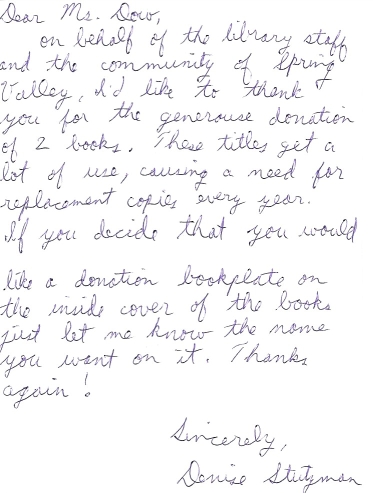 Dear Ms. Dow,
on behalf of the library staff
and the community of Spring
Valley, I'd like to thank
you for the generouse donation
of 2 books. These titles get a
lot of use, causing a need for
replacement copies every year.
If you decide that you would
like a donation bookplate on
the inside cover of the books
just let me know the name
you want on it. Thanks
again!
Sincerely,
Denise Stutzman